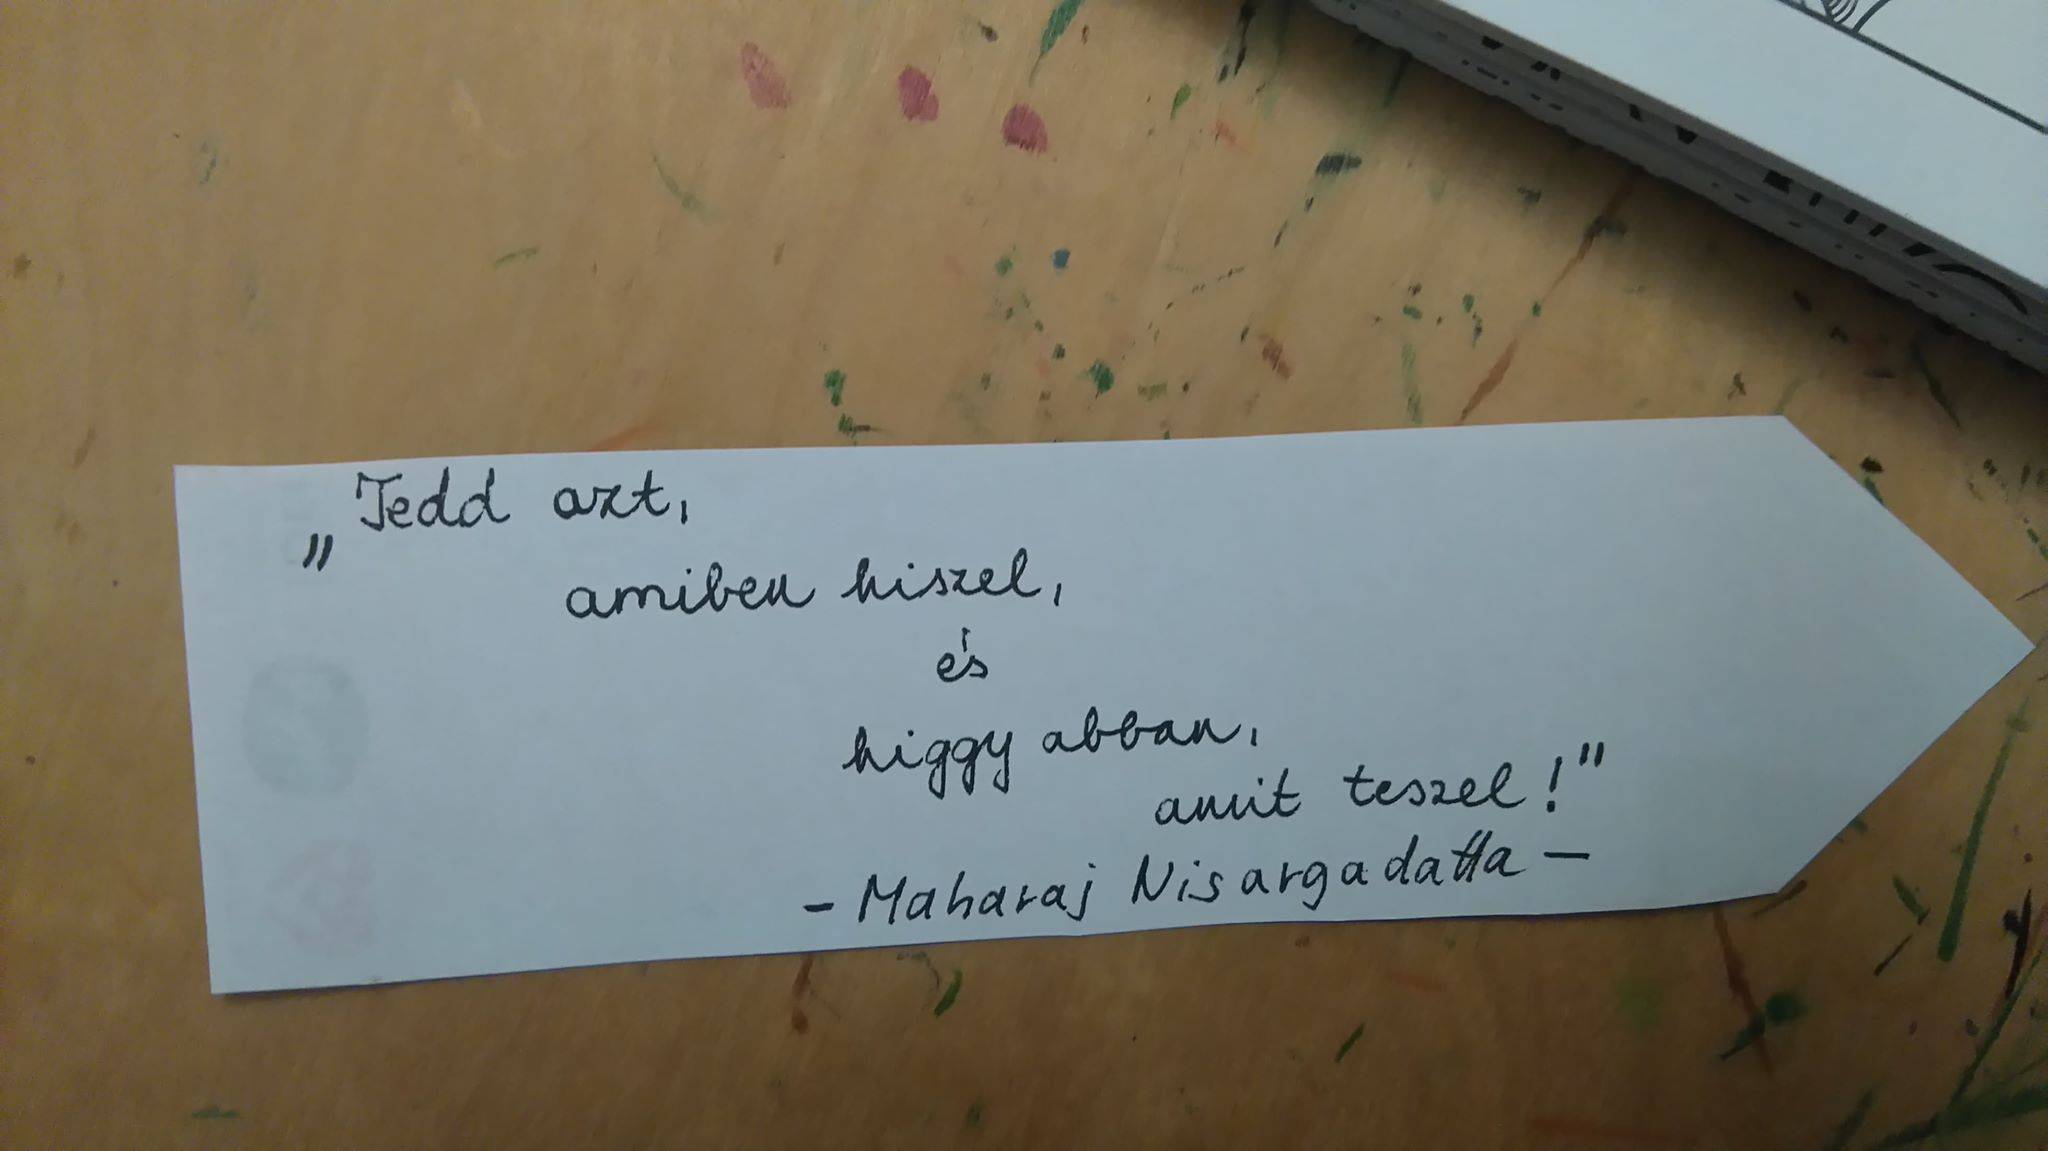 „Tedd azt,
amiben hiszel,
és
higgy abban,
amit teszel!"
- Maharaj Nisargadatta -